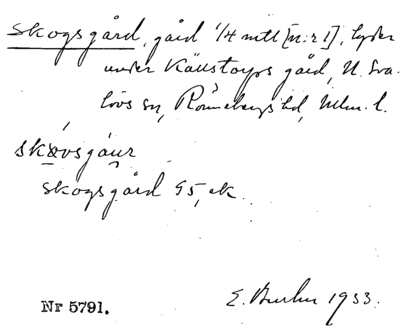 Skogsgård, gård 1/4 mtl [n:r 1], lyder
under Källstorps gård, N. Sva-
lövs sn, Rönnebergs hd, Mlm. l.
skogsgård 95, ek.
Nr 5791. E. 1933.